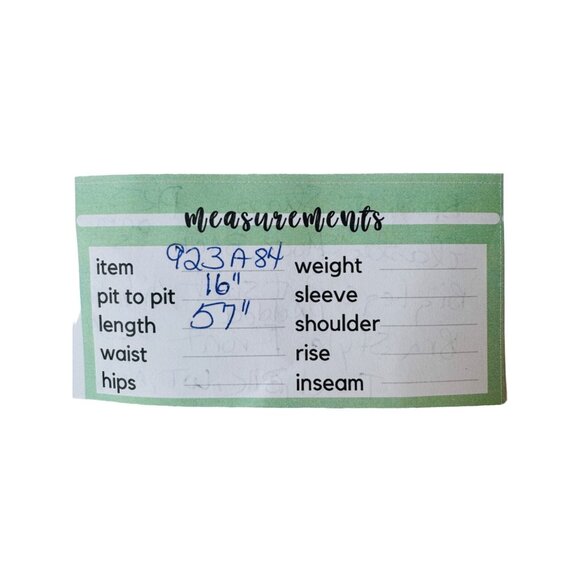 measurements
item 923A84
pit to pit 16"
length 57"
waist
hips
weight
sleeve
shoulder
rise
inseam